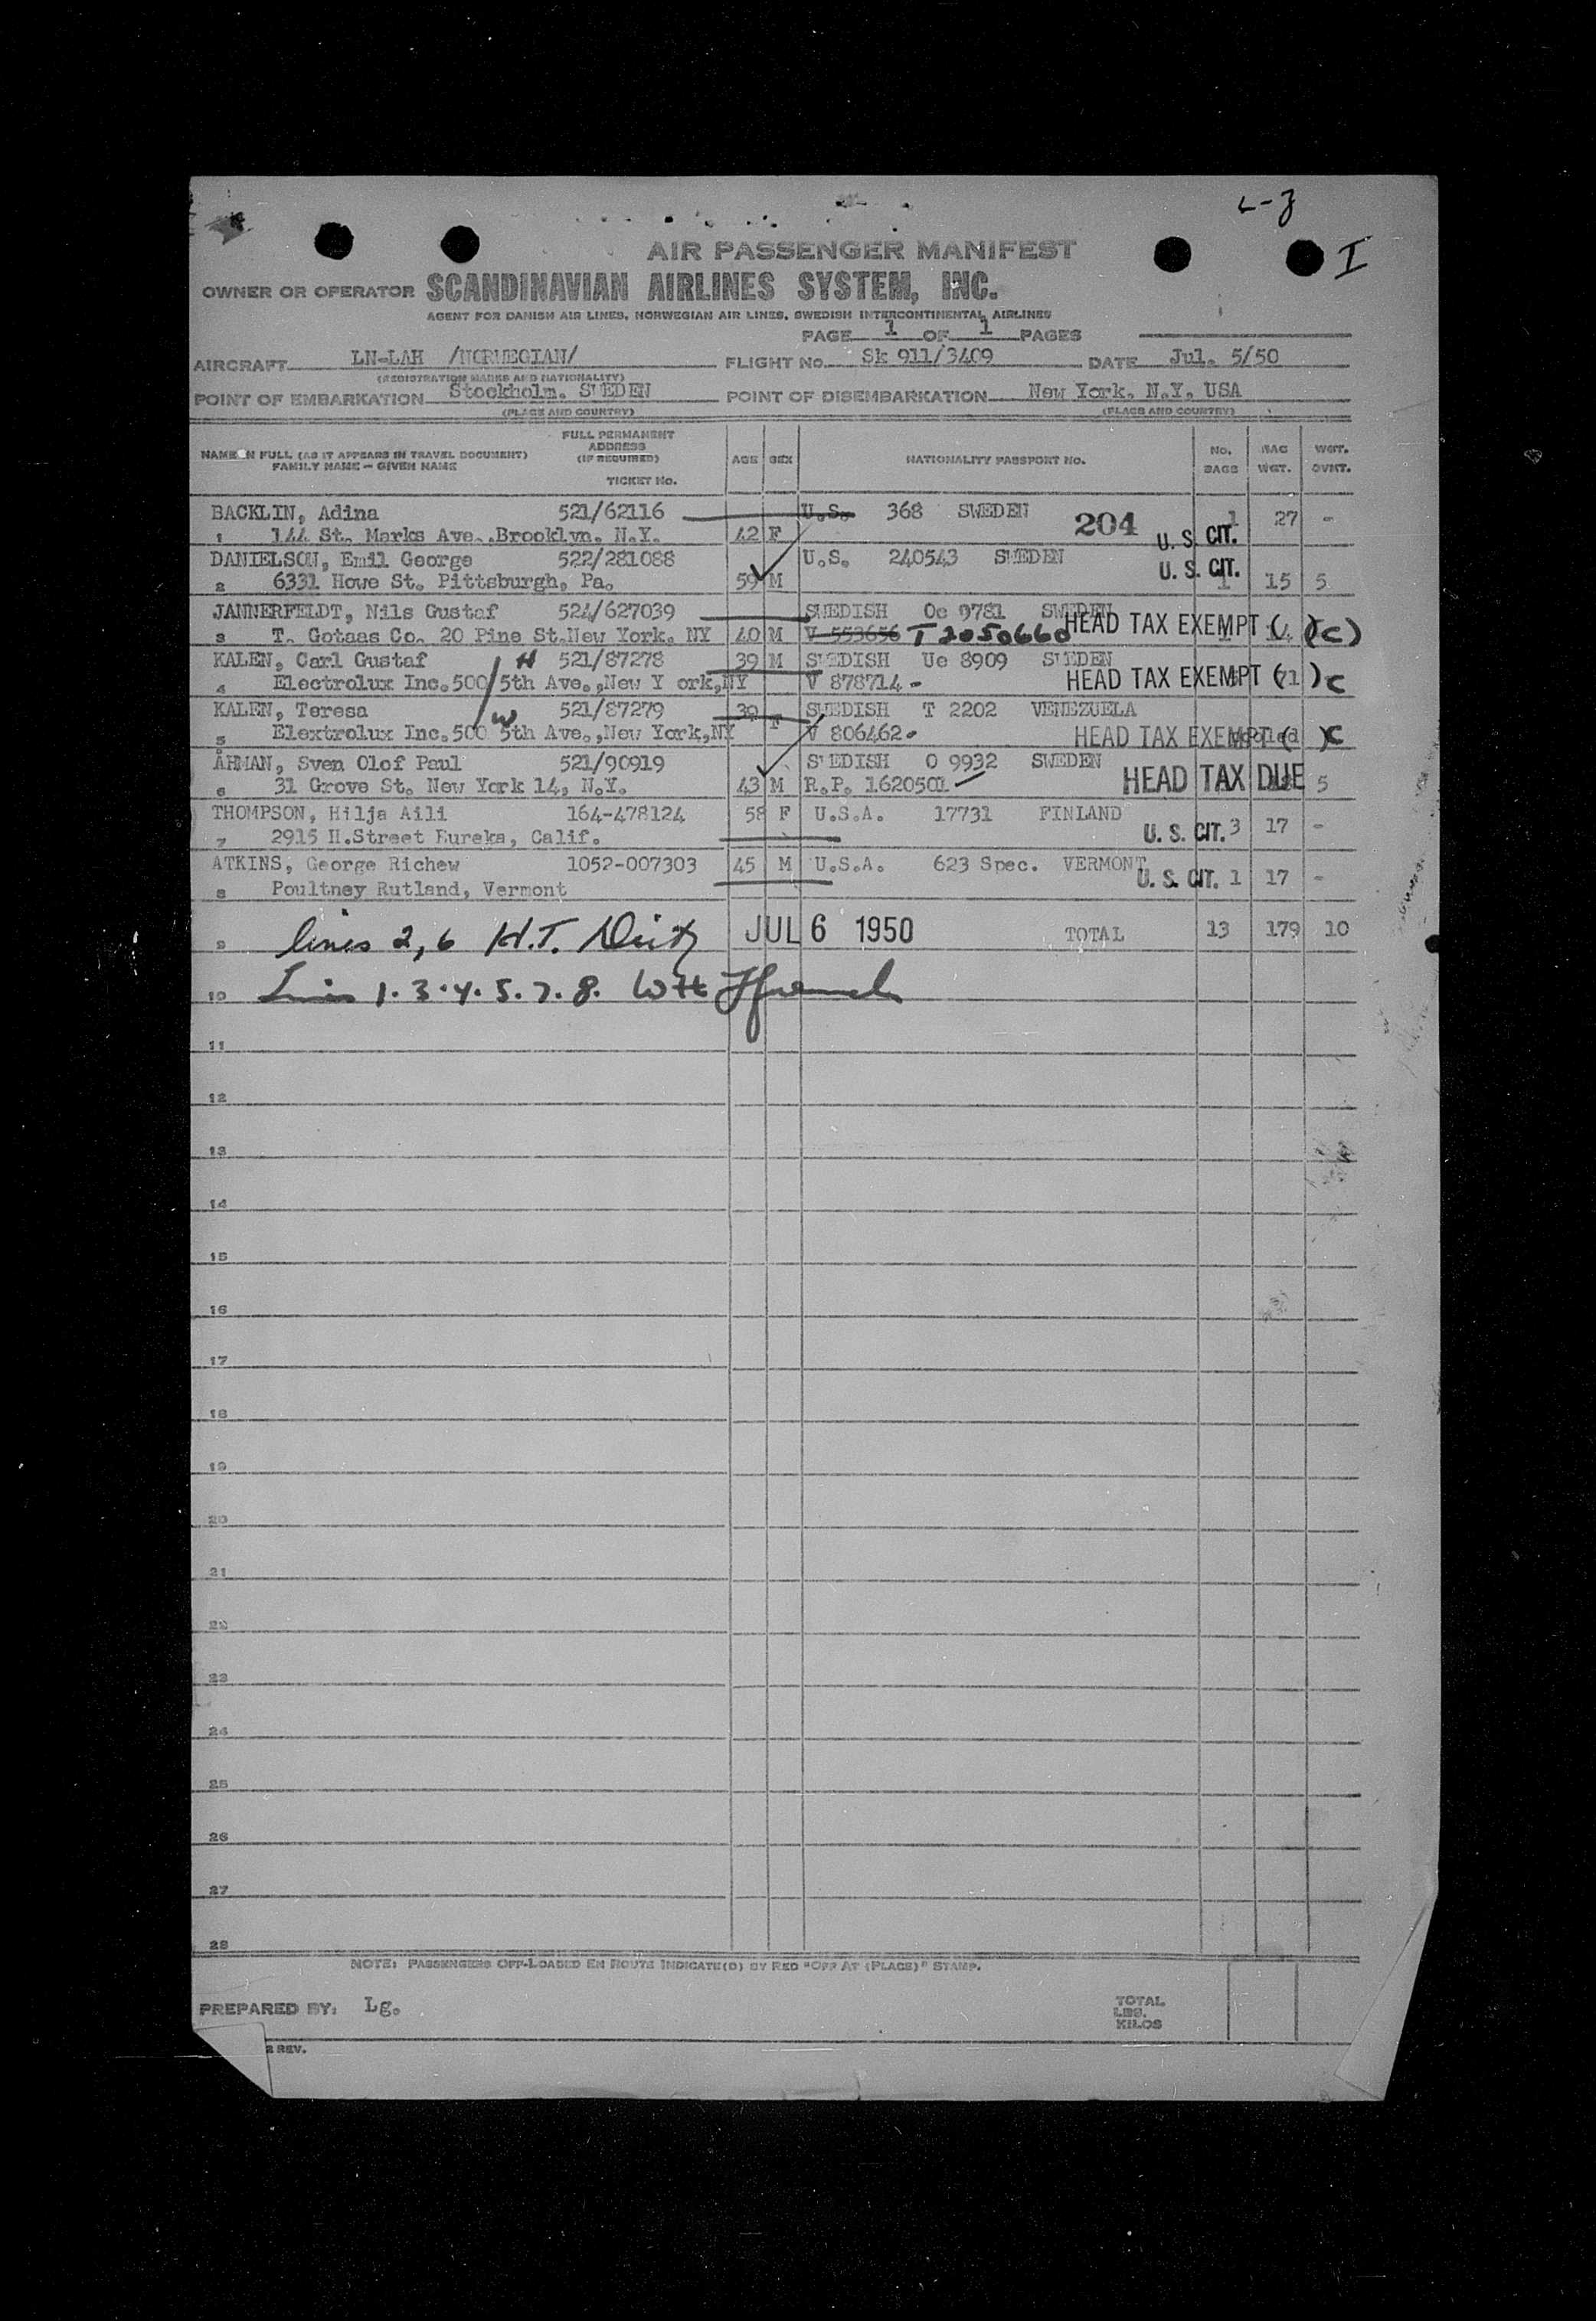 I
AIR PASSENGER MANIFEST
OWNER OR OPERATOR SCANDINAVIAN AIRLINES SYSTEM, INC.
AGENT FOR DANISH AIR LINES, NORWEGIAN AIR LINES, SWEDISH INTERCONTINENTAL AIRLINES
PAGE 1 OF 1 PAGES
AIRCRAFT LN-LAH /NORWEGIAN/ FLIGHT No. Sk 911/3409 DATE Jul. 5/50
(REGISTRATION MARKS AND NATIONALITY)
POINT OF EMBARKATION Stockholm. SWEDEN POINT OF DISEMBARKATION New York. N.Y. USA
(PLACE AND COUNTRY) (PLACE AND COUNTRY)
NAME IN FULL (AS IT APPEARS IN TRAVEL DOCUMENT) FAMILY NAME – GIVEN NAME FULL PERMANENT ADDRESS (IF REQUIRED) TICKET No. AGE SEX NATIONALITY PASSPORT NO. No. BAGS BAG WGT. WGT. OVHT.
BACKLIN, Adina 521/62116 U.S. 368 SWEDEN 204 1 27 -
1 144 St. Marks Ave. Brooklyn. N.Y. 42 F U.S. CIT.
DANIELSON, Emil George 522/281088 U.S. 240543 SWEDEN
2 6331 Howe St. Pittsburgh, Pa. 59 M U.S. CIT. 1 15 5
JANNERFELDT, Nils Gustaf 524/627039 SWEDISH Oc 9781 SWEDEN
3 T. Gotaas Co. 20 Pine St.New York. NY 40 M V 553656 T2050660 HEAD TAX EXEMPT ( )(C)
KALEN, Carl Gustaf H 521/87278 39 M SWEDISH Ue 8909 SWEDEN
4 Electrolux Inc.500 5th Ave.,New Y ork,NY V 878714 - HEAD TAX EXEMPT ( )C
KALEN, Teresa W 521/87279 39 F SWEDISH T 2202 VENEZUELA
5 Elextrolux Inc.500 5th Ave.,New York,NY V 806462- HEAD TAX EXEMPT ( )C
ÅHMAN, Sven Olof Paul 521/90919 SWEDISH O 9932 SWEDEN
6 31 Grove St. New York 14, N.Y. 43 M R.P. 1620501 HEAD TAX DUE 5
THOMPSON, Hilja Aili 164-478124 58 F U.S.A. 17731 FINLAND
7 2915 H.Street Eureka, Calif. U. S. CIT. 3 17 -
ATKINS, George Richew 1052-007303 45 M U.S.A. 623 Spec. VERMONT
8 Poultney Rutland, Vermont U. S. CIT. 1 17 -
9 lines 2, 6 H.T. JUL 6 1950 TOTAL 13 179 10
10 1. 3. 4. 5. 7. 8.
11
12
13
14
15
16
17
18
19
20
21
22
23
24
25
26
27
28
NOTE: PASSENGERS OFF-LOADED EN ROUTE INDICATE(D) BY RED "OFF AT (PLACE)" STAMP.
PREPARED BY: Lg. TOTAL LBS. KILOS
2 REV.